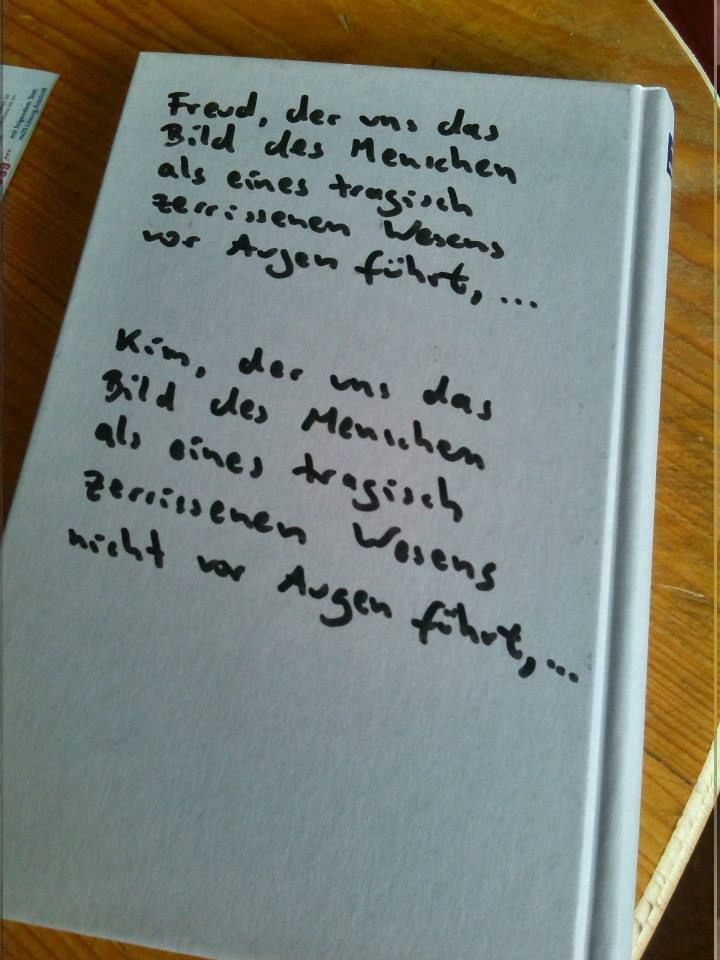 Freud, der uns das
Bild des Menschen
als eines tragisch
zerrissenen Wesens
vor Augen führt, ...
Kim, der uns das
Bild des Menschen
als eines tragisch
zerrissenen Wesens
nicht vor Augen führt, ...